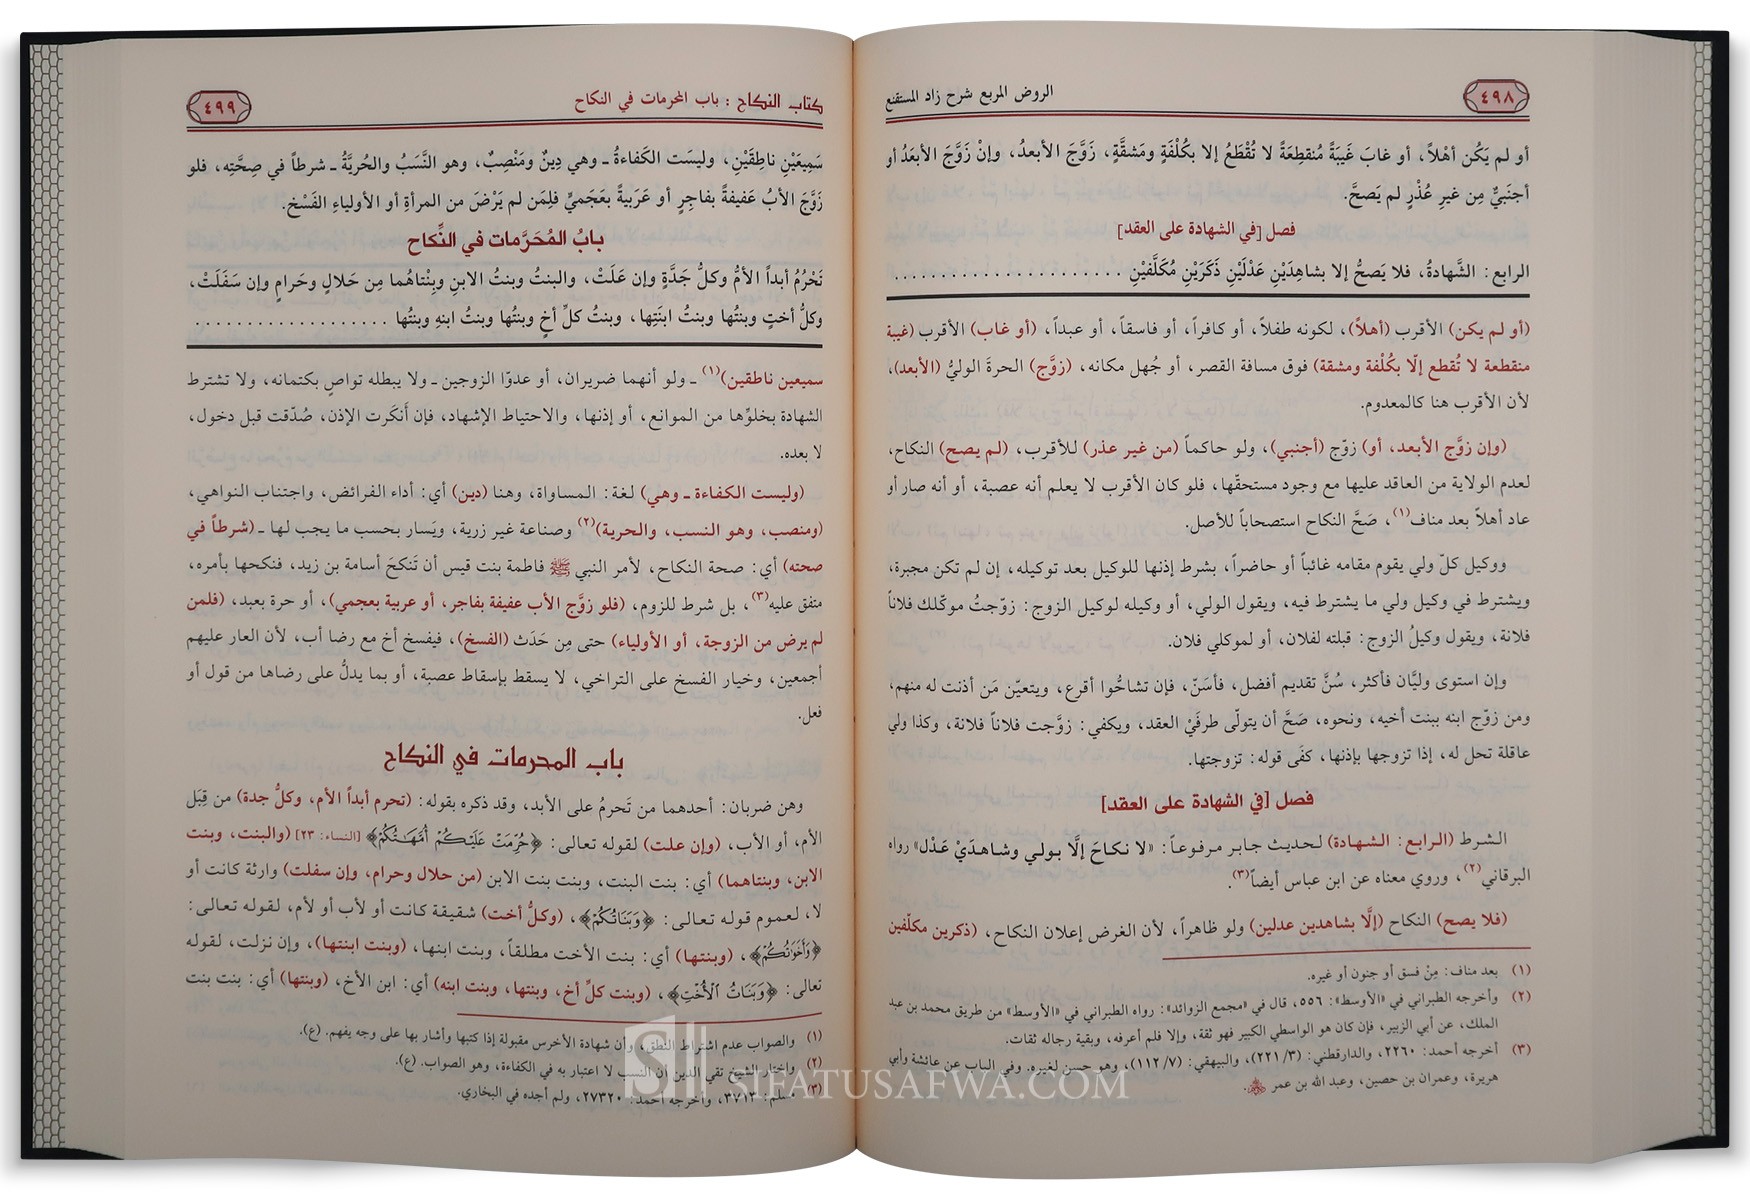 ٤٩٨
الروض المربع شرح زاد المستقنع
أو لم يَكُن أهْلاً، أو غابَ غَيبَةً مُنقطِعَةً لا تُقْطَعُ إلا بكُلْفَةٍ ومَشقَّةٍ، زَوَّجَ الأبعدُ، وإنْ زَوَّجَ الأبعَدُ أو
أجنَبيٌّ مِن غيرِ عُذْرٍ لم يَصحَّ.
فصل [في الشهادة على العقد]
الرابع: الشَّهادةُ، فلا يَصحُّ إلا بشاهِدَيْنِ عَدْلَيْنِ ذَكَرَيْنِ مُكَلَّفَيْنِ . . . . . . . . . . . . . . . . . . . . . .
(أو لم يكن) الأقرب (أهلاً)، لكونه طفلاً، أو كافراً، أو فاسقاً، أو عبداً، (أو غاب) الأقرب (غيبة
منقطعة لا تُقطع إلّا بكُلْفة ومشقة) فوق مسافة القصر، أو جُهل مكانه، (زوَّج) الحرةَ الوليُّ (الأبعد)،
لأن الأقرب هنا كالمعدوم.
(وإن زوَّج الأبعد، أو) زوّج (أجنبي)، ولو حاكماً (من غير عذر) للأقرب، (لم يصح) النكاح،
لعدم الولاية من العاقد عليها مع وجود مستحقّها، فلو كان الأقرب لا يعلم أنه عصبة، أو أنه صار أو
عاد أهلاً بعد مناف(١)، صَحَّ النكاح استصحاباً للأصل.
ووكيل كلّ ولي يقوم مقامه غائباً أو حاضراً، بشرط إذنها للوكيل بعد توكيله، إن لم تكن مجبرة،
ويشترط في وكيل ولي ما يشترط فيه، ويقول الولي، أو وكيله لوكيل الزوج: زوّجتُ موكّلك فلاناً
فلانة، ويقول وكيلُ الزوج: قبلته لفلان، أو لموكلي فلان.
وإن استوى وليَّان فأكثر، سُنَّ تقديم أفضل، فأسَنّ، فإن تشاحُّوا أقرع، ويتعيّن مَن أذنت له منهم،
ومن زوّج ابنه ببنت أخيه، ونحوه، صَحَّ أن يتولّى طرفَيْ العقد، ويكفي: زوَّجت فلاناً فلانة، وكذا ولي
عاقلة تحل له، إذا تزوجها بإذنها، كفَى قوله: تزوجتها.
فصل [في الشهادة على العقد]
الشرط (الرابع: الشهادة) لحديث جابر مرفوعاً: «لا نكاحَ إلَّا بولي وشاهدَيْ عَدْل» رواه
البرقاني(٢)، وروي معناه عن ابن عباس أيضاً(٣).
(فلا يصح) النكاح (إلَّا بشاهدين عدلين) ولو ظاهراً، لأن الغرض إعلان النكاح، (ذكرين مكلّفين
(١) بعد مناف: مِنْ فسق أو جنون أو غيره.
(٢) وأخرجه الطبراني في «الأوسط»: ٥٥٦، قال في «مجمع الزوائد»: رواه الطبراني في «الأوسط» من طريق محمد بن عبد
الملك، عن أبي الزبير، فإن كان هو الواسطي الكبير فهو ثقة، وإلا فلم أعرفه، وبقية رجاله ثقات.
(٣) أخرجه أحمد: ٢٢٦٠، والدارقطني: (٣/ ٢٢١)، والبيهقي: (٧/ ١١٢)، وهو حسن لغيره. وفي الباب عن عائشة وأبي
هريرة، وعمران بن حصين، وعبد الله بن عمر.
كتاب النكاح: باب المحرمات في النكاح
٤٩٩
سَمِيعَيْنِ ناطِقَيْنِ، وليسَت الكَفاءةُ ـ وهي دِينٌ ومَنْصِبٌ، وهو النَّسَبُ والحُريَّةُ ـ شرطاً في صِحَّتِه، فلو
زوَّجَ الأبُ عَفيفةً بفاجِرٍ أو عَرَبيةً بعَجَميٍّ فلِمَن لم يَرْضَ من المرأةِ أو الأولياءِ الفَسْخ.
بابُ المُحَرَّمات في النِّكاح
تَحْرُمُ أبداً الأمُّ وكلُّ جَدَّةٍ وإن عَلَتْ، والبنتُ وبنتُ الابنِ وبِنْتاهُما مِن حَلالٍ وحَرامٍ وإن سَفَلَتْ،
وكلُّ أختٍ وبنتُها وبنتُ ابنَتِها، وبنتُ كلِّ أخٍ وبنتُها وبنتُ ابنهِ وبنتُها . . . . . . . . . . . . . . . . . . .
سميعين ناطقين)(١) ـ ولو أنهما ضريران، أو عدوّا الزوجين ـ ولا يبطله تواصٍ بكتمانه، ولا تشترط
الشهادة بخلوِّها من الموانع، أو إذنها، والاحتياط الإشهاد، فإن أَنكَرت الإذن، صُدّقت قبل دخول،
لا بعده.
(وليست الكفاءة ـ وهي) لغة: المساواة، وهنا (دين) أي: أداء الفرائض، واجتناب النواهي،
(ومنصب، وهو النسب، والحرية)(٢) وصناعة غير زرية، ويَسار بحسب ما يجب لها ـ (شرطاً في
صحته) أي: صحة النكاح، لأمر النبي ﷺ فاطمة بنت قيس أن تَنكحَ أسامة بن زيد، فنكحها بأمره،
متفق عليه(٣)، بل شرط للزوم، (فلو زوَّج الأب عفيفة بفاجر، أو عربية بعجمي)، أو حرة بعبد، (فلمن
لم يرض من الزوجة، أو الأولياء) حتى مِن حَدَث (الفسخ)، فيفسخ أخ مع رضا أب، لأن العار عليهم
أجمعين، وخيار الفسخ على التراخي، لا يسقط بإسقاط عصبة، أو بما يدلُّ على رضاها من قول أو
فعل.
باب المحرمات في النكاح
وهن ضربان: أحدهما من تَحرمُ على الأبد، وقد ذكره بقوله: (تحرم أبداً الأم، وكلُّ جدة) من قِبَل
الأم، أو الأب، (وإن علت) لقوله تعالى: ﴿حُرِّمَتْ عَلَيْكُمْ أُمَّهَٰتُكُمْ﴾ [النساء: ٢٣] (والبنت، وبنت
الابن، وبنتاهما) أي: بنت البنت، وبنت بنت الابن (من حلال وحرام، وإن سفلت) وارثة كانت أو
لا، لعموم قوله تعالى: ﴿وَبَنَاتُكُمْ﴾، (وكلُّ أخت) شقيقة كانت أو لأب أو لأم، لقوله تعالى:
﴿وَأَخَوَٰتُكُمْ﴾، (وبنتها) أي: بنت الأخت مطلقاً، وبنت ابنها، (وبنت ابنتها)، وإن نزلت، لقوله
تعالى: ﴿وَبَنَاتُ ٱلْأُخْتِ﴾، (وبنت كلِّ أخ، وبنتها، وبنت ابنه) أي: ابن الأخ، (وبنتها) أي: بنت بنت
(١) والصواب عدم اشتراط النطق، وأن شهادة الأخرس مقبولة إذا كتبها وأشار بها على وجه يفهم. (ع).
(٢) واختار الشيخ تقي الدين أن النسب لا اعتبار به في الكفاءة، وهو الصواب. (ع).
(٣) مسلم: ٣٧١٣، وأخرجه أحمد: ٢٧٣٢٠، ولم أجده في البخاري.
SIFATUSAFWA.COM